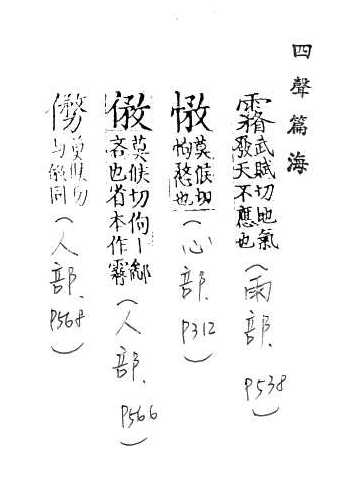 四聲篇海
武賦切地氣
發天不應也
(雨部. P538)
莫候切
怐愗也
(心部. P312)
莫候切佝丨鄙
吝也省本作
(人部. P566)
莫候切
与同
(人部. P568)